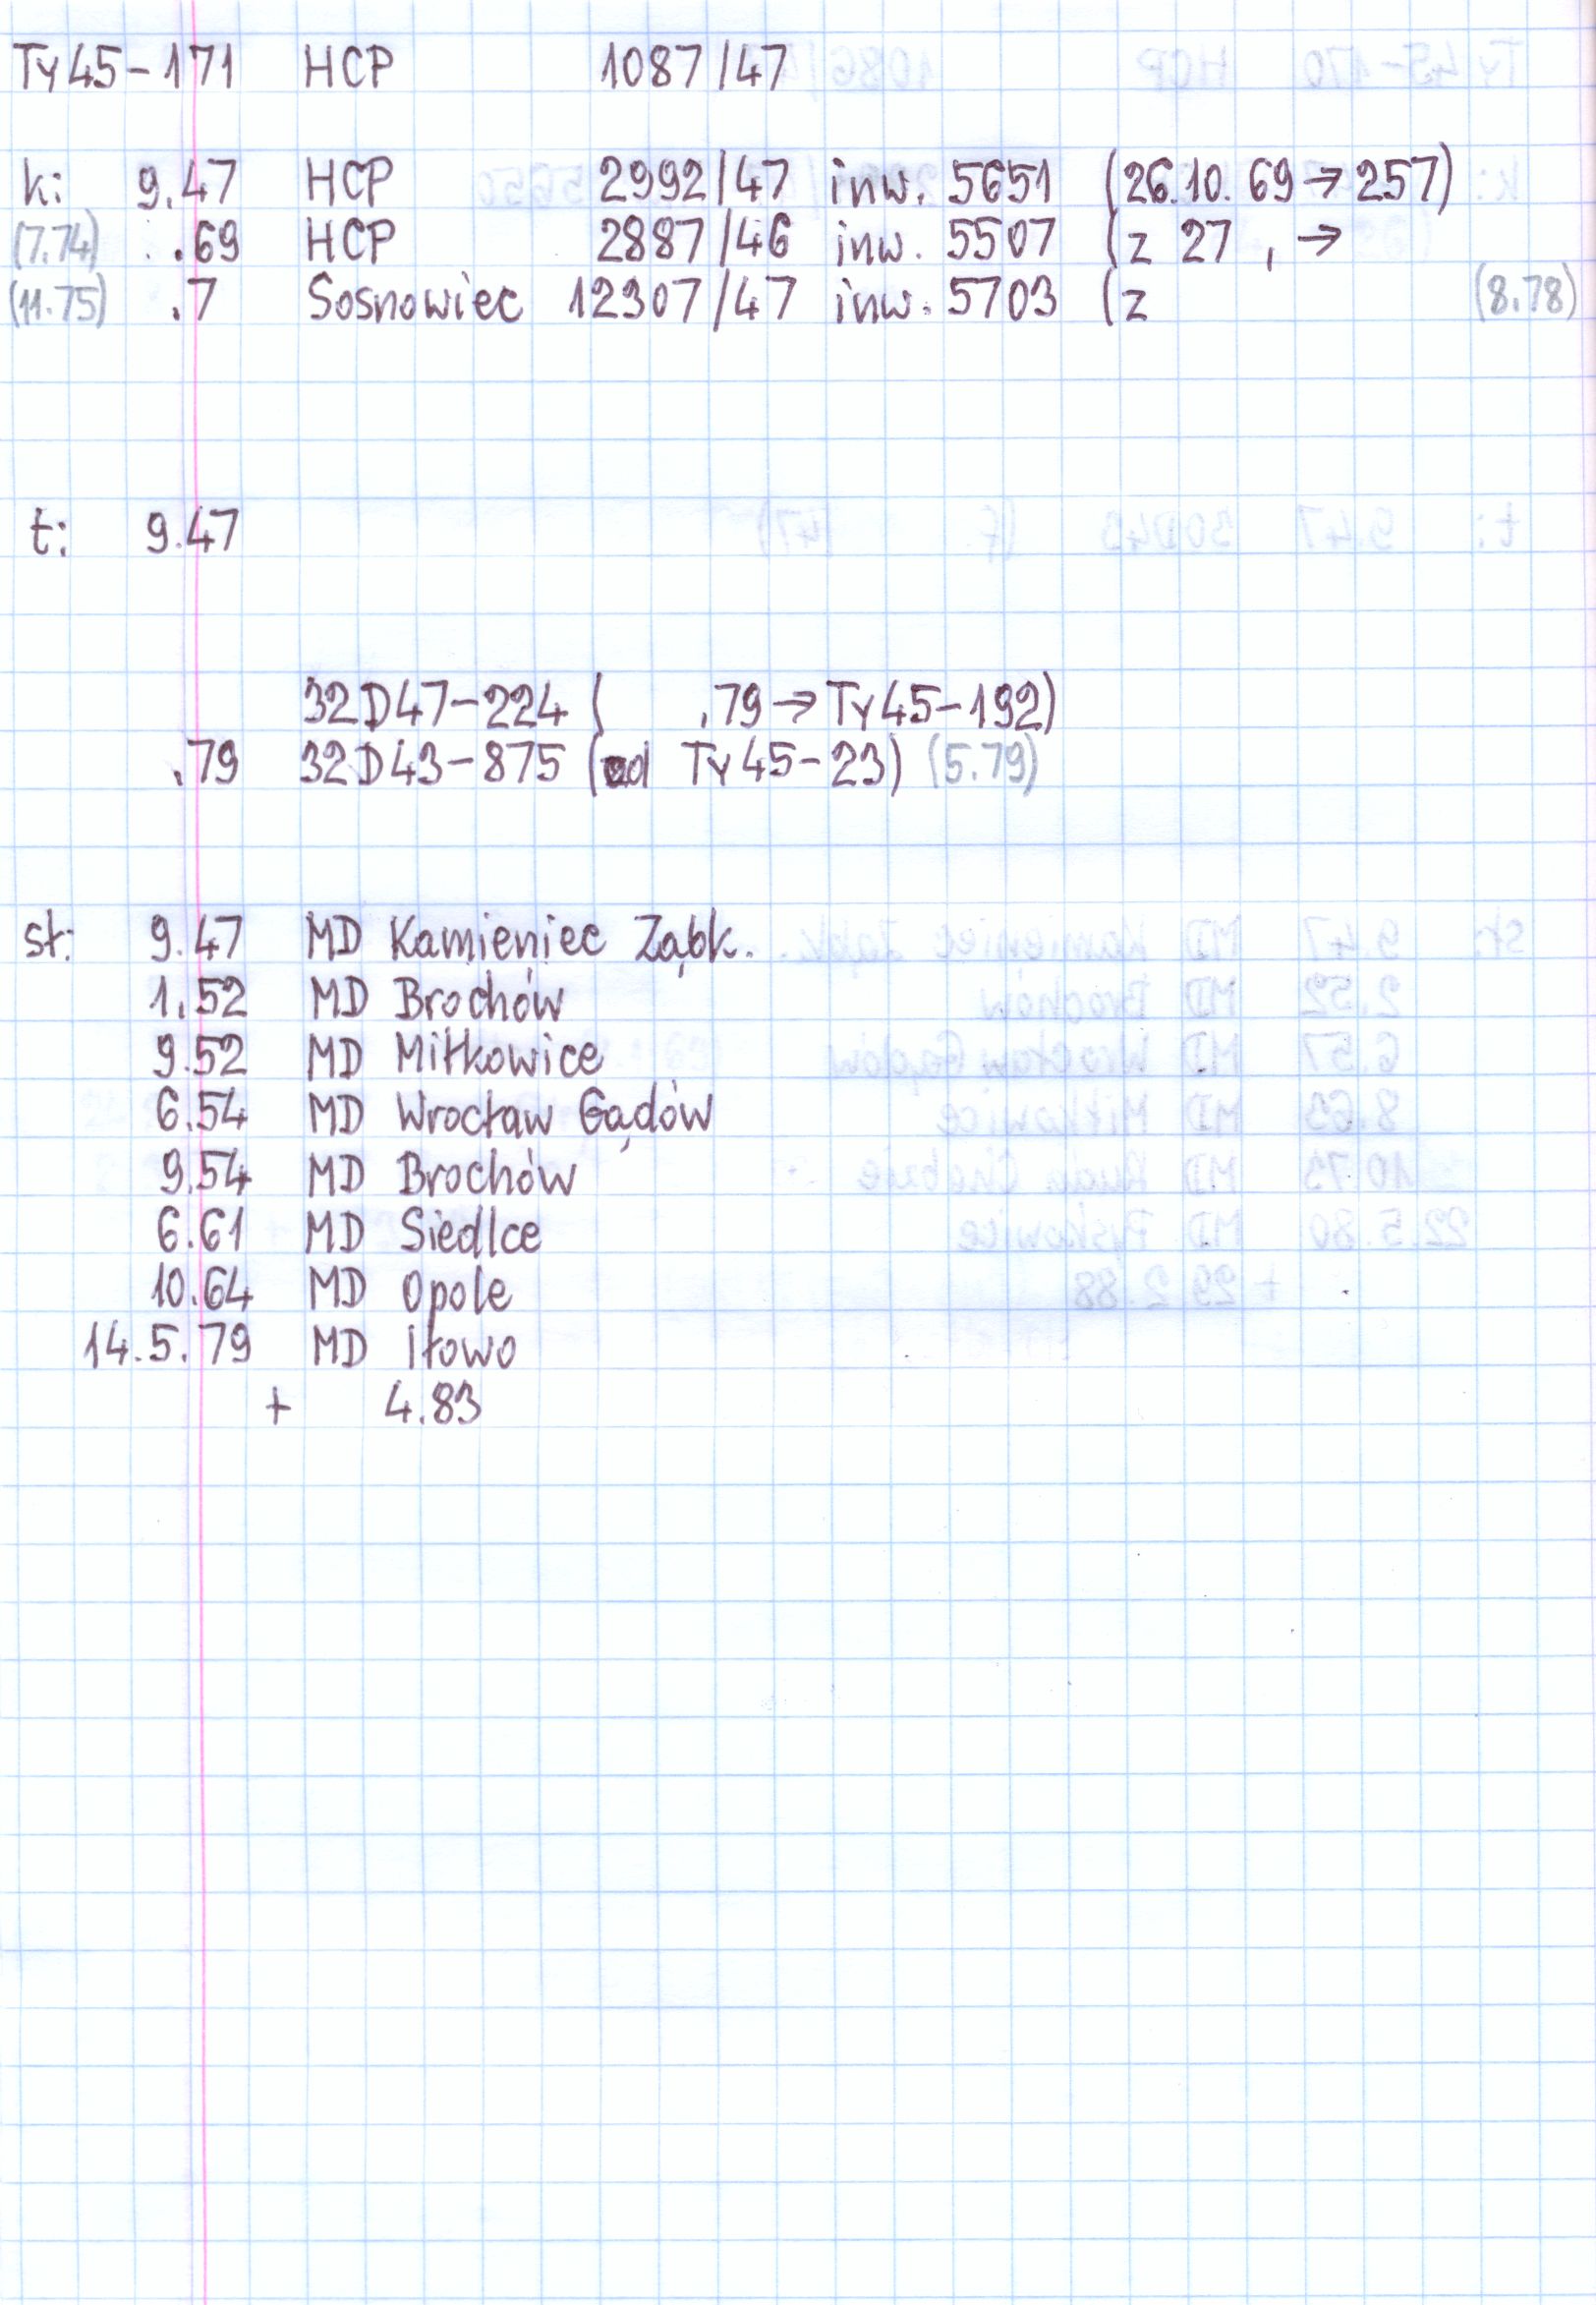 Ty45-171 HCP 1087/47
k: 9.47 HCP 2992/47 inw. 5651 (26.10.69→257)
(7.74) .69 HCP 2887/46 inw. 5507 (z 27 , →
(11.75) .7 Sosnowiec 12307/47 inw. 5703 (z (8.78)
t: 9.47
32D47-224 ( .79→Ty45-192)
.79 32D43-875 (od Ty45-23) (5.79)
st: 9.47 MD Kamieniec Ząbk.
1.52 MD Brochów
9.52 MD Miłkowice
6.54 MD Wrocław Gądów
9.54 MD Brochów
6.61 MD Siedlce
10.64 MD Opole
14.5.79 MD Iłowo
+ 4.83